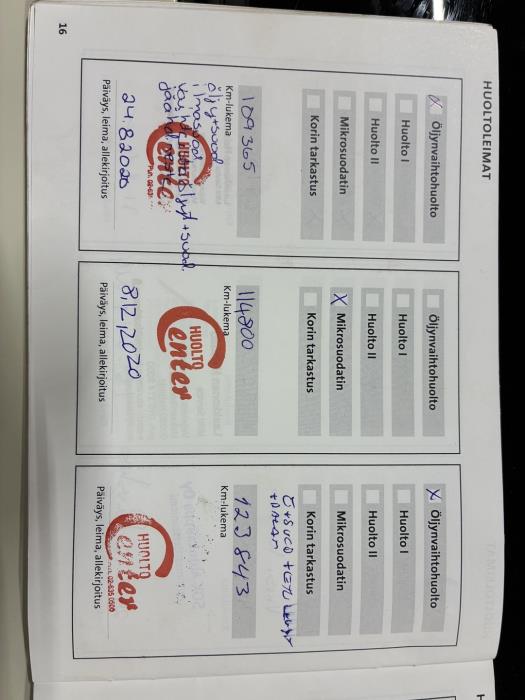 HUOLTOLEIMAT
X Öljynvaihtohuolto
Huolto I
Huolto II
Mikrosuodatin
Korin tarkastus
109365
Km-lukema
öljy+suod.
ilmasuod.
HUOLTO
Center
24.8.2020
Päiväys, leima, allekirjoitus
Öljynvaihtohuolto
Huolto I
Huolto II
X Mikrosuodatin
Korin tarkastus
114800
Km-lukema
HUOLTO
Center
8.12.2020
Päiväys, leima, allekirjoitus
X Öljynvaihtohuolto
Huolto I
Huolto II
Mikrosuodatin
Korin tarkastus
Ö+SUOD +ETU
123843
Km-lukema
HUOLTO
Center
Puh. 02-635 0500
Päiväys, leima, allekirjoitus
16